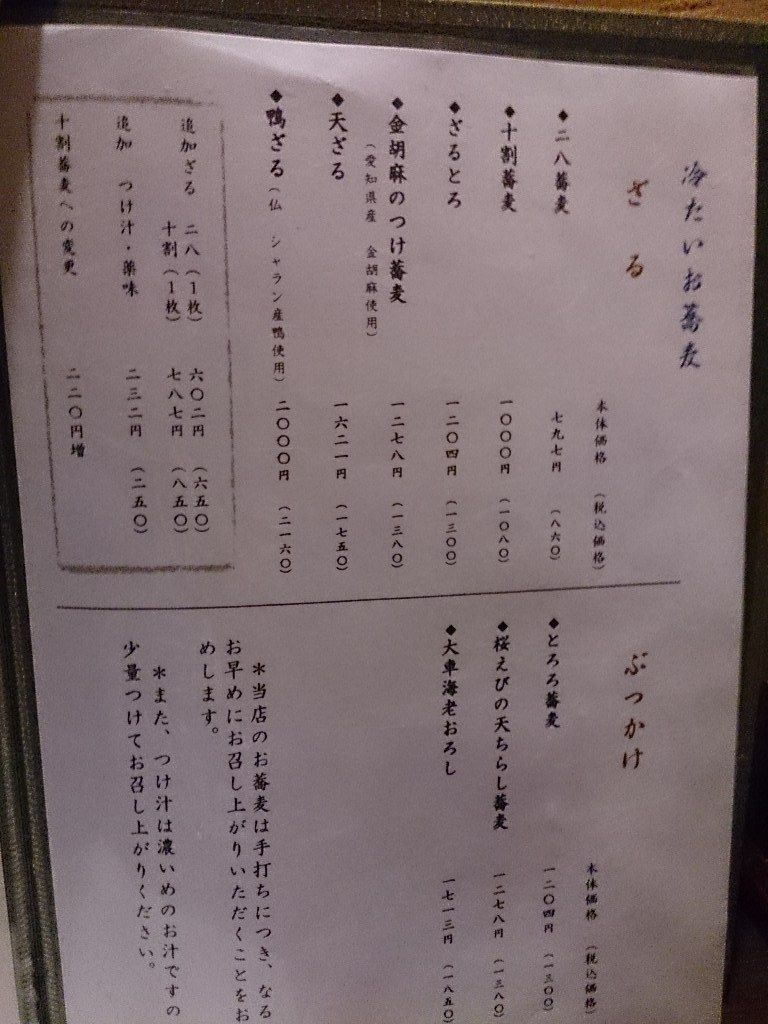 冷たいお蕎麦
ざる
本体価格　（税込価格）
◆二八蕎麦　七九七円　（八六〇）
◆十割蕎麦　一〇〇〇円　（一〇八〇）
◆ざるとろ　一二〇四円　（一三〇〇）
◆金胡麻のつけ蕎麦　一二七八円　（一三八〇）
（愛知県産　金胡麻使用）
◆天ざる　一六二一円　（一七五〇）
◆鴨ざる（仏　シャラン産鴨使用）　二〇〇〇円　（二一六〇）
追加ざる　二八（１枚）　六〇二円　（六五〇）
十割（１枚）　七八七円　（八五〇）
追加　つけ汁・薬味　二三二円　（二五〇）
十割蕎麦への変更　二二〇円増
ぶっかけ
本体価格　（税込価格）
◆とろろ蕎麦　一二〇四円　（一三〇〇）
◆桜えびの天ちらし蕎麦　一二七八円　（一三八〇）
◆大車海老おろし　一七一三円　（一八五〇）
＊当店のお蕎麦は手打ちにつき、なる
お早めにお召し上がりいただくことをお
めします。
＊また、つけ汁は濃いめのお汁ですの
少量つけてお召し上がりください。